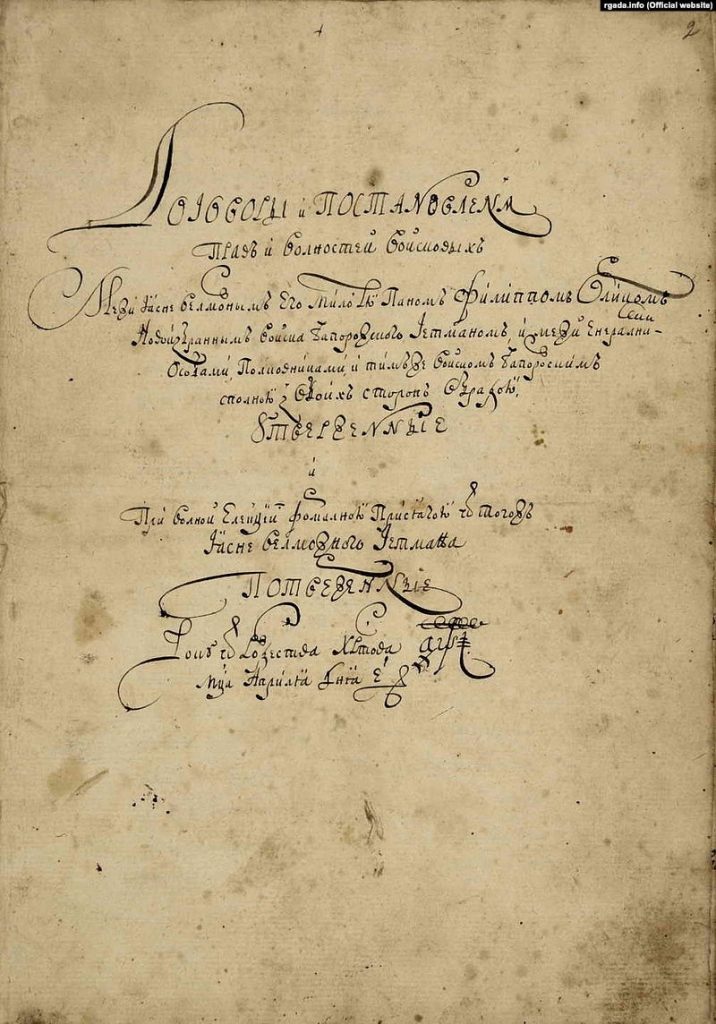 rgada.info (Official website)
2
Договоры и постановленѧ
Правъ и волностей войсковыхъ
Межи Ясне велможнымъ Его Милостю Паномъ Филиппомъ Орликомъ
Новоизбраннымъ войска Запорозского Гетманомъ, и межи Енералними
Особами Полковниками, и тимъже войскомъ Запорозскимъ
сполною з обоихъ сторонъ обрадою,
Утверженные
и
При волной Елекций формалною присягою ѿ тогожъ
Ясне велможного Гетмана
Потверженные
Року ѿ Рождества Христова аѱ҃і
Мця Априля дня е҃